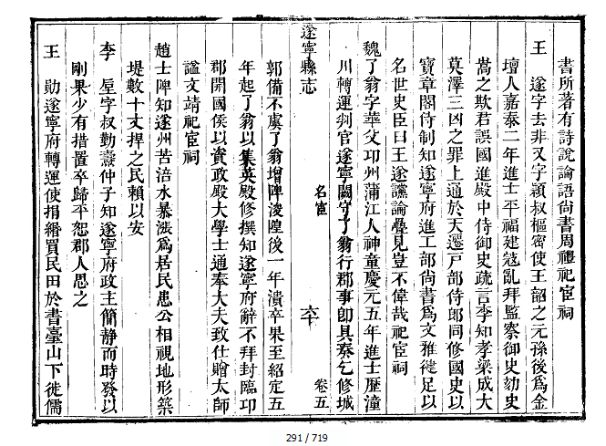 書所著有詩說論語尚書周禮祀宦祠
王 遂字去非又字穎叔樞密使王韶之元孫後為金
壇人嘉泰二年進士平福建寇亂拜監察御史劾史
嵩之欺君誤國進殿中侍御史疏言李知孝梁成大
莫澤三凶之罪上通於天遷戶部侍郎同修國史以
寶章閣侍制知遂寧府進工部尚書為文雅徤足以
名世史臣曰王遂讜論疊見豈不偉哉祀宦祠
魏了翁字華父邛州蒲江人神童慶元五年進士歷潼
川轉運判官遂寧闕守了翁行郡事即具奏乞修城
遂寧縣志 名宦 六十 卷五
郭備不虞了翁增陴浚隍後一年潰卒果至紹定五
年起了翁以集英殿修撰知遂寧府辭不拜封臨邛
郡開國侯以資政殿大學士通奉大夫致仕贈太師
謚文靖祀宦祠
趙士陴知遂州苦涪水暴漲為居民患公相視地形築
堤數十丈捍之民賴以安
李 垕字叔勤燾仲子知遂寧府政主簡靜而時發以
剛果少有措置卒歸平恕郡人思之
王 勛遂寧府轉運使捐緡買民田於書臺山下徙儒
291 / 719